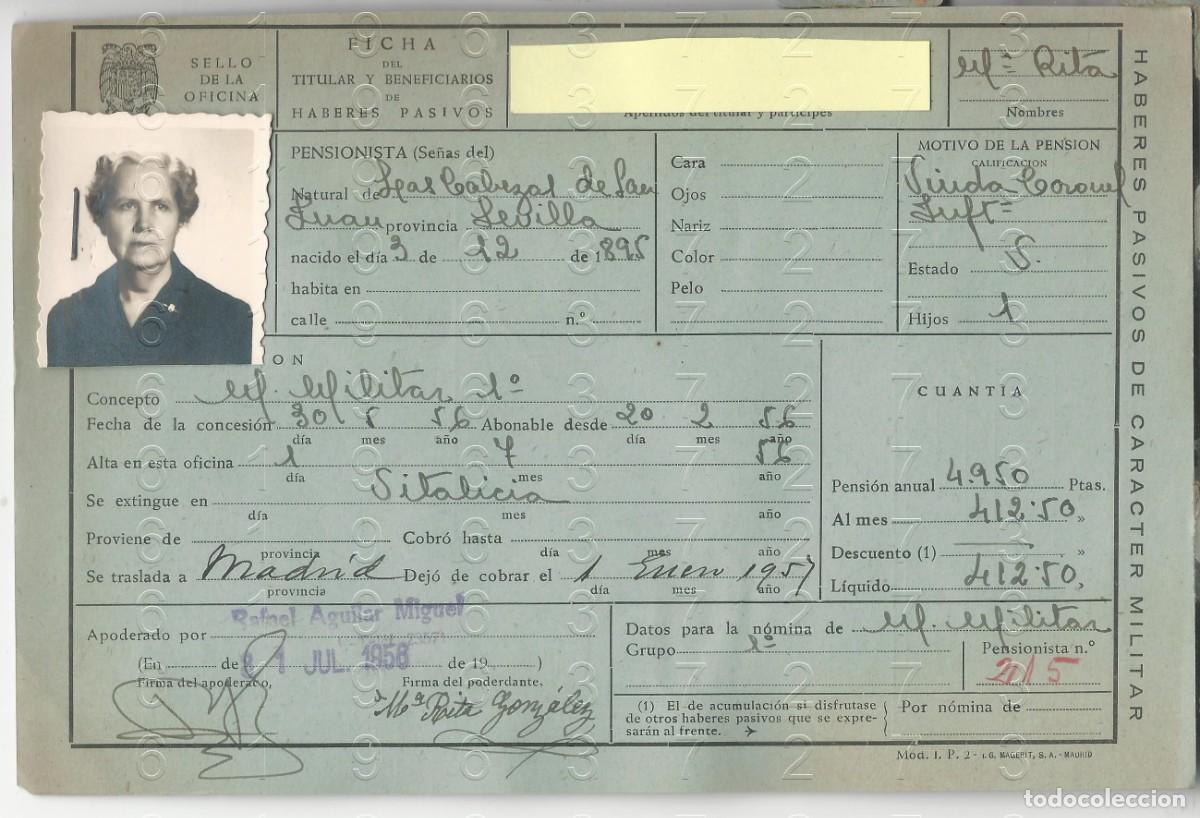 SELLO
DE LA
OFICINA
FICHA
DEL
TITULAR Y BENEFICIARIOS
DE
HABERES PASIVOS
Apellidos del titular y partícipes
Mª Rita
Nombres
HABERES PASIVOS DE CARACTER MILITAR
PENSIONISTA (Señas del)
Natural de Las Cabezas de San
Juan provincia Sevilla
nacido el día 3 de 12 de 1895
habita en
calle n.º
Cara
Ojos
Nariz
Color
Pelo
MOTIVO DE LA PENSION
CALIFICACION
Viuda Coronel
Inftª
Estado S.
Hijos 1
ON
Concepto M. Militar 1º
Fecha de la concesión 30 5 56 Abonable desde 20 2 56
día mes año día mes año
Alta en esta oficina 1 7 56
día mes año
Se extingue en Vitalicia
día mes año
Proviene de Cobró hasta
provincia día mes año
Se traslada a Madrid Dejó de cobrar el 1 Enero 1957
provincia día mes año
CUANTIA
Pensión anual 4.950 Ptas.
Al mes 412'50 »
Descuento (1) »
Líquido 412'50 »
Apoderado por Rafael Aguilar Miguel
(En de 1 JUL. 1956 de 19 )
Firma del apoderado, Firma del poderdante,
Mª Rita González
Datos para la nómina de M. Militar
Grupo 1º Pensionista n.º
215
(1) El de acumulación si disfrutase
de otros haberes pasivos que se expre-
sarán al frente.
Por nómina de
Mod. I. P. 2 - I.G. MAGERIT, S. A. - MADRID
todocoleccion